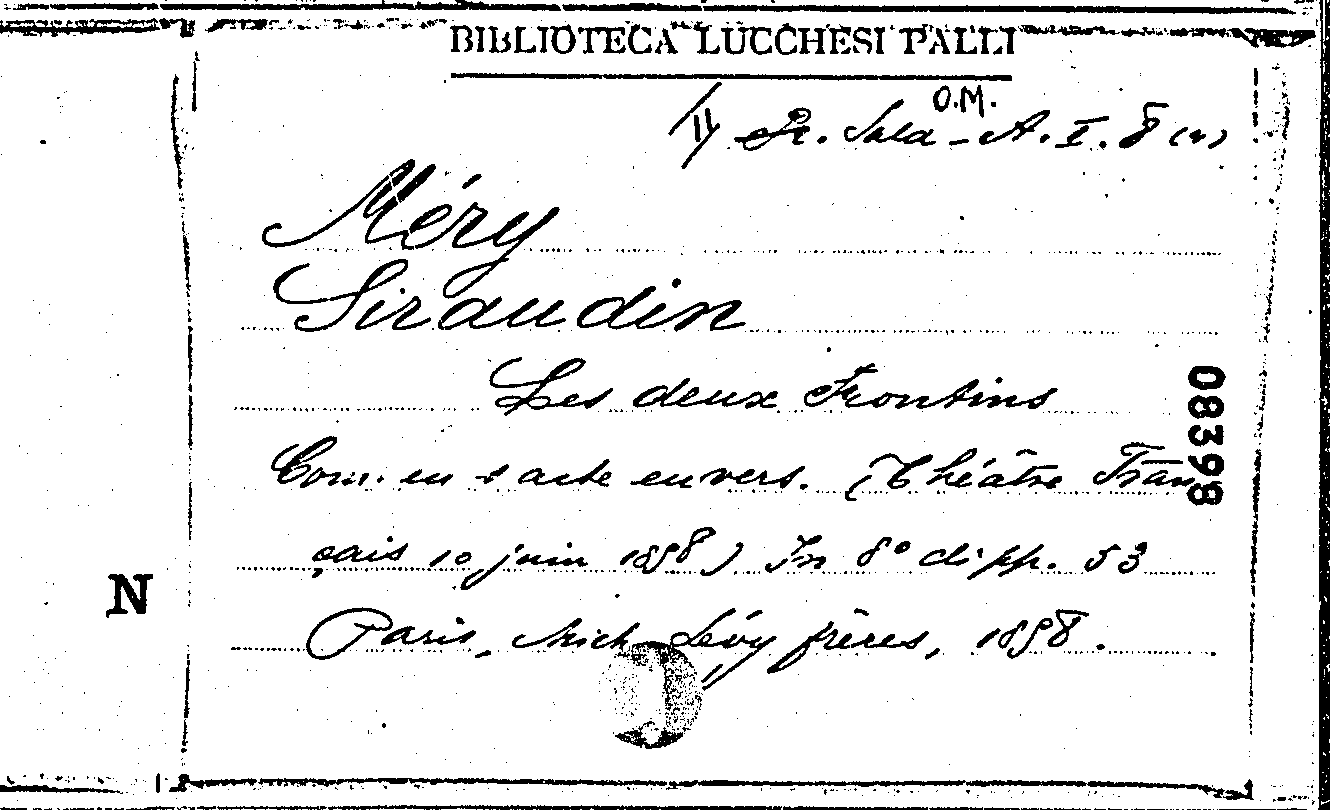 BIBLIOTECA LUCCHESI PALLI
O.M.
Sala - A. I. 8 (4)
Méry
Siraudin
Les deux Frontins
Com. en 1 acte en vers. (Théâtre Fran
çais 10 juin 1858) In 8° di pp. 53
Paris, Mich Lévy frères, 1858.
08398
N